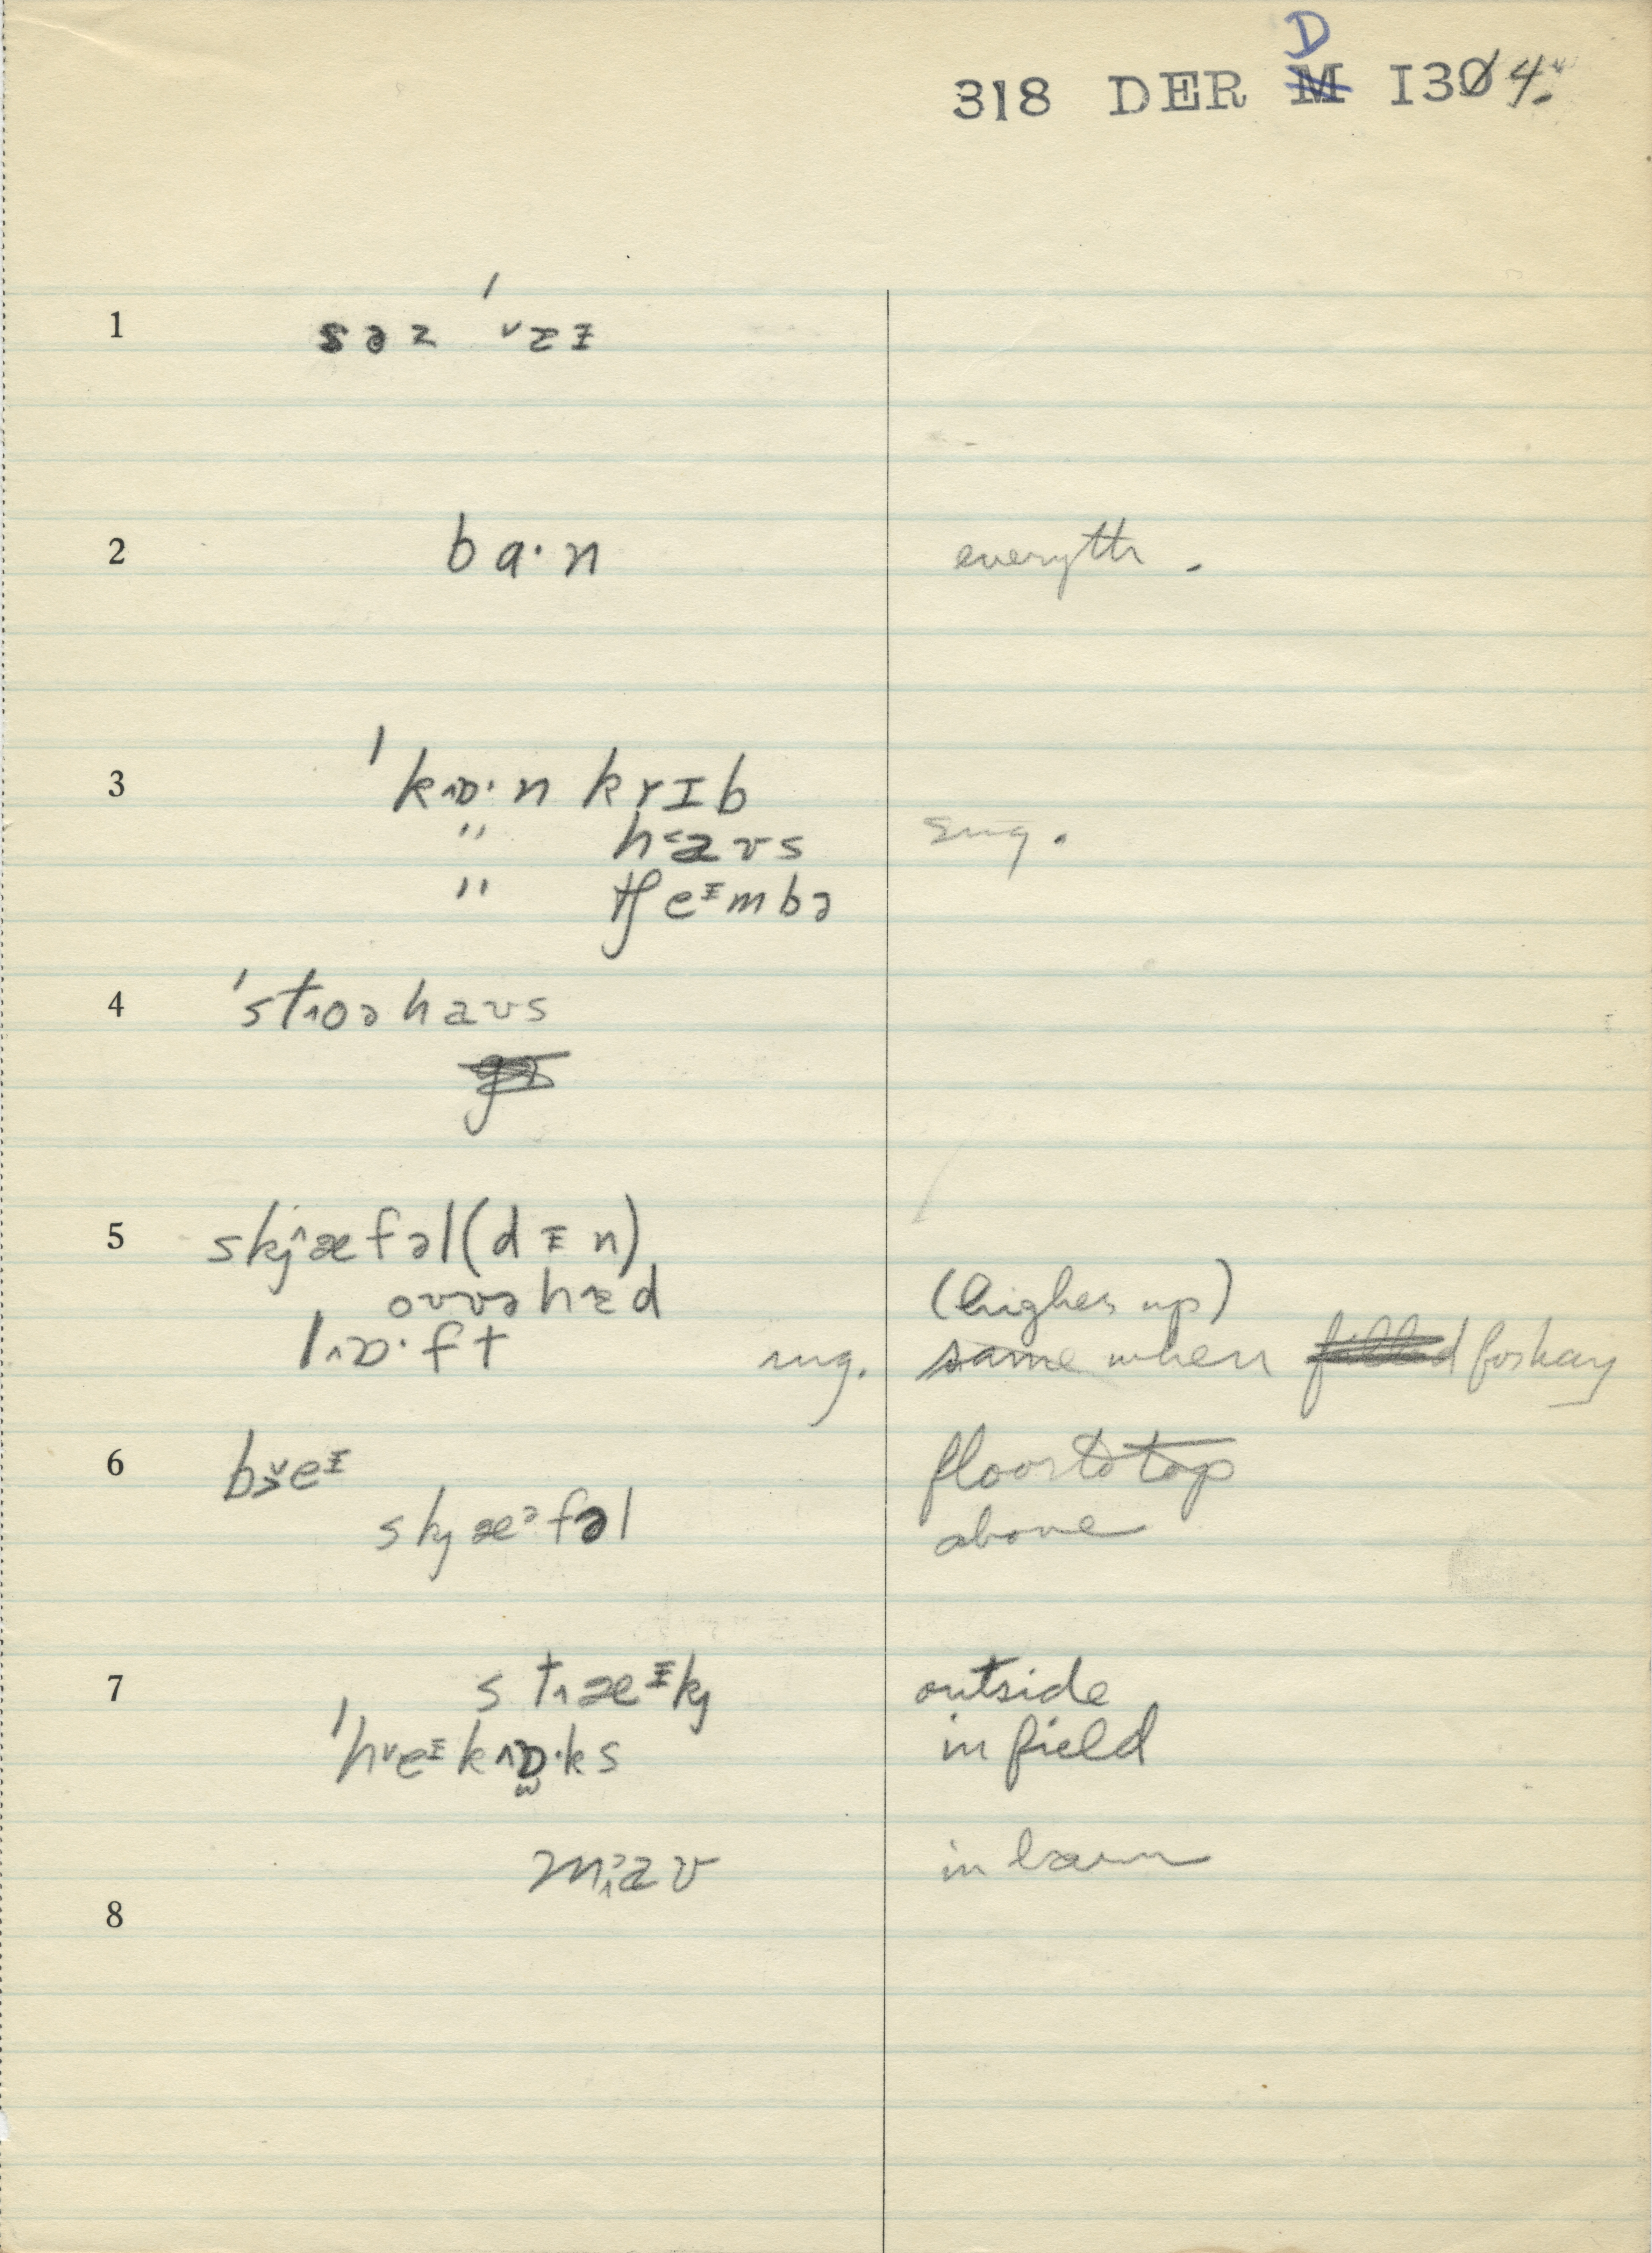 D
318 DER M I30 4.
1 səz ˈvɛɪ
2 ba·n everyth.
3 ˈkɒ·n krɪb
" haʊs sug.
" tʃeᶦmbə
4 ˈstoəhaʊs
5 skj æfəl (dɪn)
oʊvəhɛd (higher up)
lɒ·ft sug. same when filled for hay
6 beᶦ floor to top
skj æᵊfəl above
7 stæᶦkj outside
ˈheᶦkɒ·ks in field
maʊ in barn
8